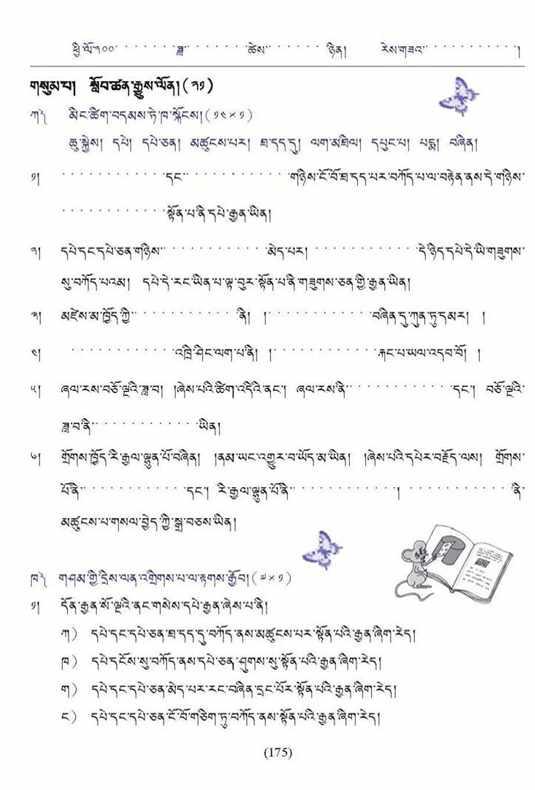 ཕྱི་ལོ་༢༠༠ · · · · · · · ཟླ་ · · · · · · · ཚེས་ · · · · · · ཉིན། རེས་གཟའ་ · · · · · · · · · ·།
གསུམ་པ། སློབ་ཚན་རྒྱུས་ལོན། (༢༡)
ཀ༽ མིང་ཚིག་བདམས་ཏེ་ཁ་སྐོངས། (༡༤×༡)
ཆུ་སྐྱེས། དཔེ། དཔེ་ཅན། མཚུངས་པར། ཐ་དད་དུ། ལག་མཐིལ། དཔུང་པ། པདྨ། བཞིན།
༡། · · · · · · · · · · · དང་ · · · · · · · · · · · གཉིས་ངོ་བོ་ཐ་དད་པར་བཀོད་པ་ལ་བརྟེན་ནས་དེ་གཉིས་
· · · · · · · · · · · སྟོན་པ་ནི་དཔེ་རྒྱན་ཡིན།
༢། དཔེ་དང་དཔེ་ཅན་གཉིས་ · · · · · · · · · · མེད་པར། · · · · · · · · · · · དེ་ཉིད་དཔེ་དེ་ཡི་གཟུགས་
སུ་བཀོད་པའམ། དཔེ་དེ་རང་ཡིན་པ་ལྟ་བུར་སྟོན་པ་ནི་གཟུགས་ཅན་གྱི་རྒྱན་ཡིན།
༣། མཛེས་མ་ཁྱོད་ཀྱི་ · · · · · · · · · · · ནི། ། · · · · · · · · · · · བཞིན་དུ་ཀུན་ཏུ་དམར། །
༤། · · · · · · · · · · · འཁྲི་ཤིང་ལག་པ་ནི། ། · · · · · · · · · · · རྐང་པ་ཡལ་འདབ་བོ། །
༥། ཞལ་རས་བཅོ་ལྔའི་ཟླ་བ། །ཞེས་པའི་ཚིག་འདིའི་ནང་། ཞལ་རས་ནི་ · · · · · · · · · · · དང་། བཅོ་ལྔའི་
ཟླ་བ་ནི་ · · · · · · · · · · · ཡིན།
༦། གྲོགས་ཁྱོད་རི་རྒྱལ་ལྷུན་པོ་བཞིན། །ནམ་ཡང་འགྱུར་བ་ཡོད་མ་ཡིན། །ཞེས་པའི་དཔེར་བརྗོད་ལས། གྲོགས་
པོ་ནི་ · · · · · · · · · · · དང་། རི་རྒྱལ་ལྷུན་པོ་ནི་ · · · · · · · · · · ·། · · · · · · · · · · · ནི་
མཚུངས་པ་གསལ་བྱེད་ཀྱི་སྒྲ་བཅས་ཡིན།
ཁ༽ གཤམ་གྱི་དྲིས་ལན་འགྲིགས་པ་ལ་རྟགས་རྒྱོབ། (༧×༡)
༡། དོན་རྒྱན་སོ་ལྔའི་ནང་གསེས་དཔེ་རྒྱན་ཞེས་པ་ནི།
ཀ) དཔེ་དང་དཔེ་ཅན་ཐ་དད་དུ་བཀོད་ནས་མཚུངས་པར་སྟོན་པའི་རྒྱན་ཞིག་རེད།
ཁ) དཔེ་དངོས་སུ་བཀོད་ནས་དཔེ་ཅན་ཤུགས་སུ་སྟོན་པའི་རྒྱན་ཞིག་རེད།
ག) དཔེ་དང་དཔེ་ཅན་མེད་པར་རང་བཞིན་དྲང་པོར་སྟོན་པའི་རྒྱན་ཞིག་རེད།
ང) དཔེ་དང་དཔེ་ཅན་ངོ་བོ་གཅིག་ཏུ་བཀོད་ནས་སྟོན་པའི་རྒྱན་ཞིག་རེད།
(175)